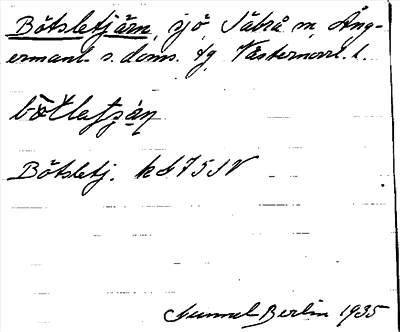 Båtsletjärn, sjö, Säbrå sn, Ång-
ermanl. s. doms. tg, Västernorrl. l.
Båtsletj. kt 75 SV
Gunnel Berlin 1935